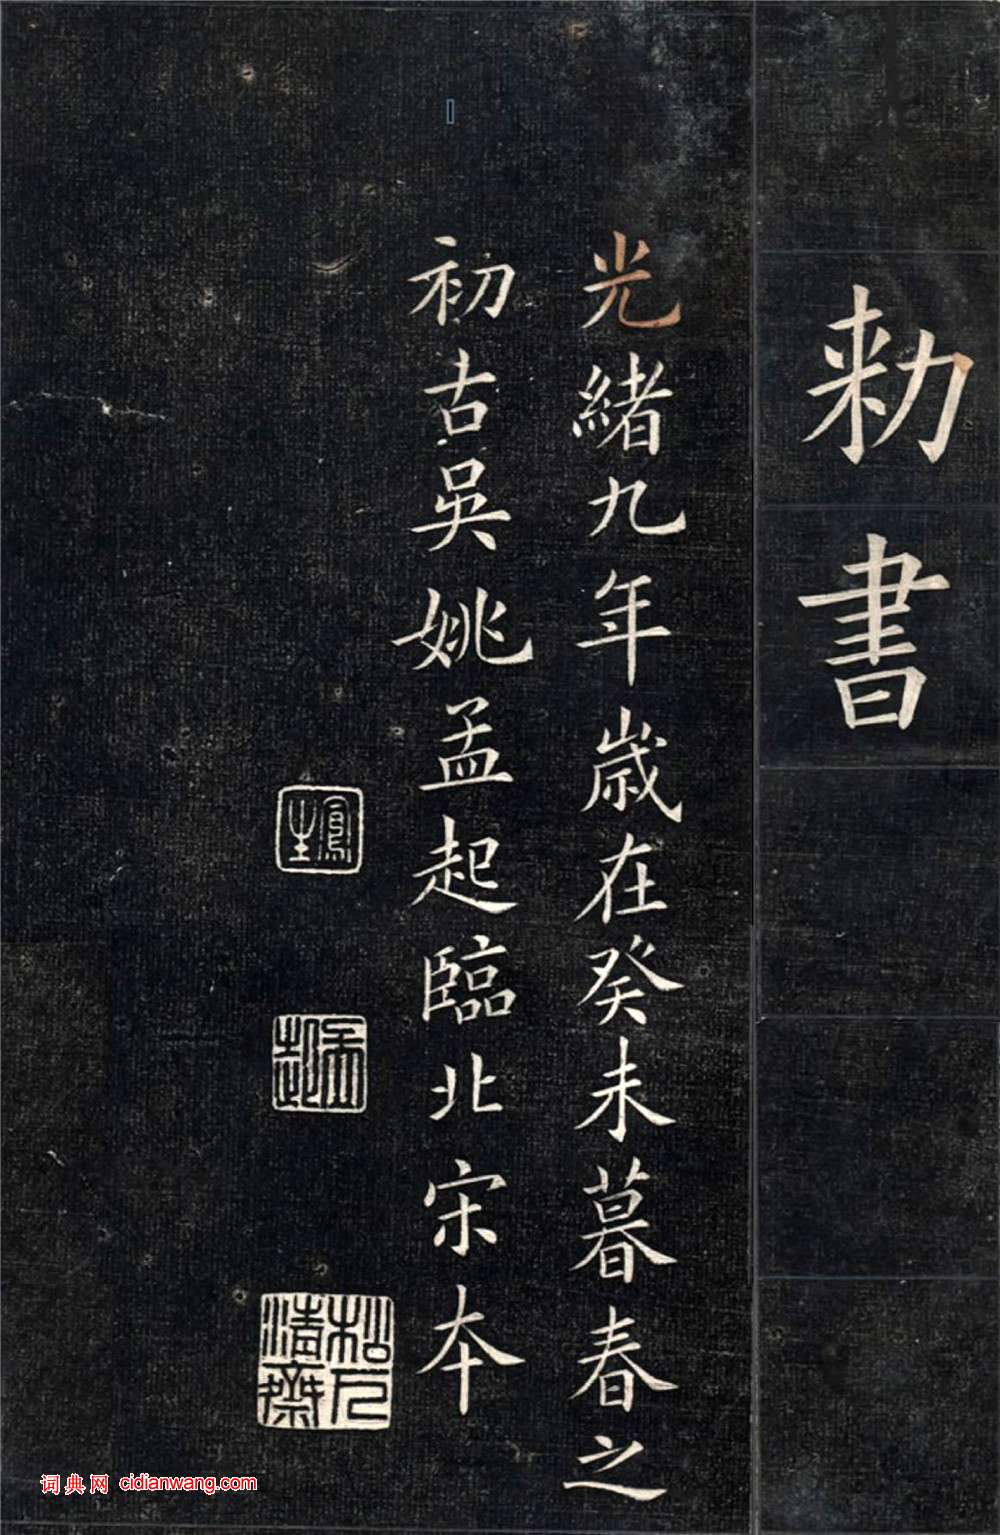 勅書
光緒九年歲在癸未暮春之
初古吳姚孟起臨北宋本
鳳生
孟起
松下清齋
词典网 cidianwang.com